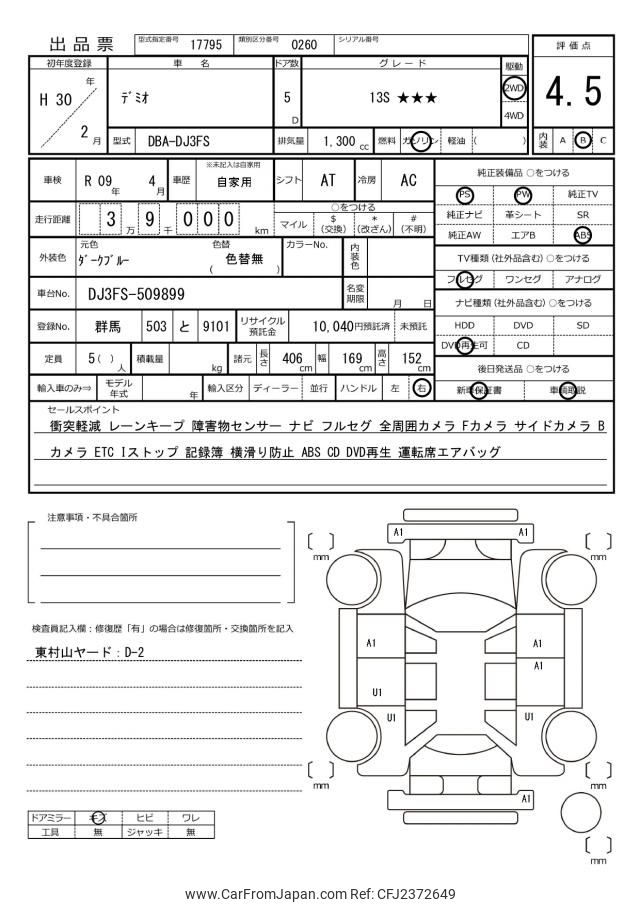 出品票
型式指定番号 17795 類別区分番号 0260 シリアル番号
評価点
初年度登録 車名 ドア数 グレード 駆動
H 30 年 2 月
デミオ
5 D
13S ★★★
2WD
4WD
4.5
型式 DBA-DJ3FS 排気量 1,300 cc 燃料 ガソリン 軽油 ( )
内装 A B C
車検 R 09 年 4 月 車歴 ※未記入は自家用 自家用 シフト AT 冷房 AC
走行距離 3 万 9 千 0 0 0 km
○をつける
マイル $ (交換) * (改ざん) # (不明)
外装色 元色 ダークブルー 色替 ( 色替無 ) カラーNo. 内装色
車台No. DJ3FS-509899 名変期限 月 日
登録No. 群馬 503 と 9101 リサイクル預託金 10,040円預託済 未預託
定員 5( ) 人 積載量 kg 諸元 長さ 406 cm 幅 169 cm 高さ 152 cm
輸入車のみ⇒ モデル年式 年 輸入区分 ディーラー 並行 ハンドル 左 右
純正装備品 ○をつける
PS PW 純正TV
純正ナビ 革シート SR
純正AW エアB ABS
TV種類 (社外品含む) ○をつける
フルセグ ワンセグ アナログ
ナビ種類 (社外品含む) ○をつける
HDD DVD SD
DVD再生可 CD
後日発送品 ○をつける
新車保証書 車輌取説
セールスポイント
衝突軽減 レーンキープ 障害物センサー ナビ フルセグ 全周囲カメラ Fカメラ サイドカメラ B
カメラ ETC Iストップ 記録簿 横滑り防止 ABS CD DVD再生 運転席エアバッグ
注意事項・不具合箇所
検査員記入欄：修復歴「有」の場合は修復箇所・交換箇所を記入
東村山ヤード：D-2
A1 A1
mm mm
A1 A1
A1
U1
U1 U1
mm mm
A1
mm
ドアミラー キズ ヒビ ワレ
工具 無 ジャッキ 無
www.CarFromJapan.com Ref: CFJ2372649